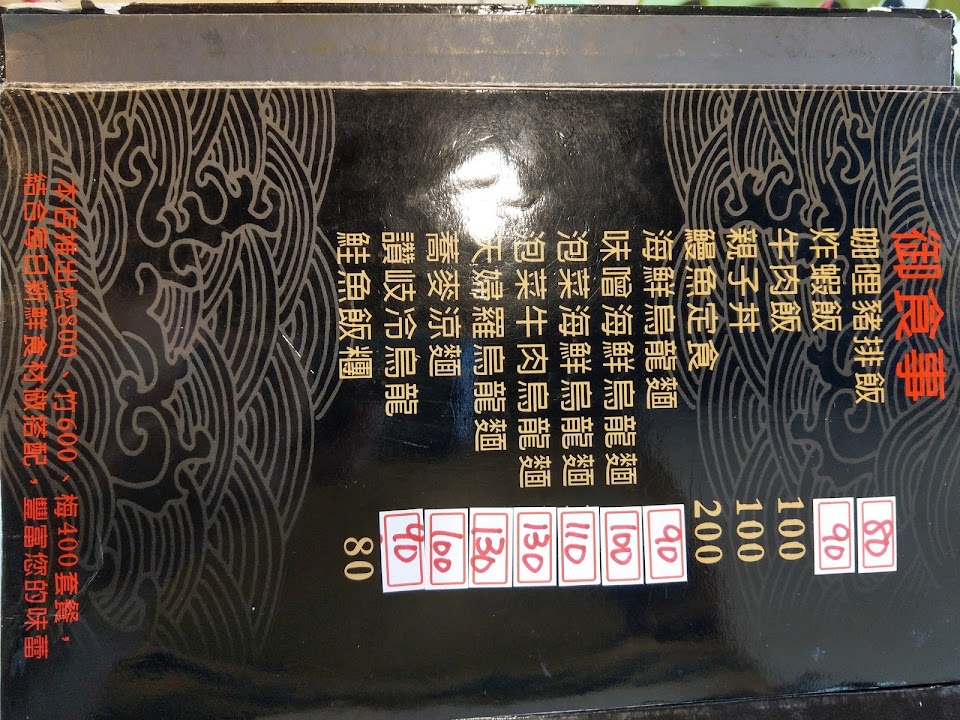 御食事
咖哩豬排飯 80
炸蝦飯 90
牛肉飯 100
親子丼 100
鰻魚定食 200
海鮮烏龍麵 90
味噌海鮮烏龍麵 100
泡菜海鮮烏龍麵 110
泡菜牛肉烏龍麵 130
天婦羅烏龍麵 130
蕎麥涼麵 100
讚岐冷烏龍 90
鮭魚飯糰 80
本店推出松800、竹600、梅400套餐，
結合每日新鮮食材做搭配，豐富您的味蕾